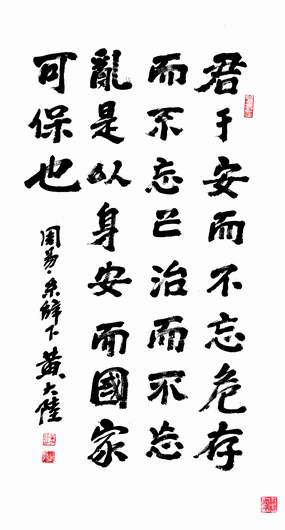 君于安而不忘危存
而不忘亡治而不忘
亂是以身安而國家
可保也
周易·系辭下黃大陸